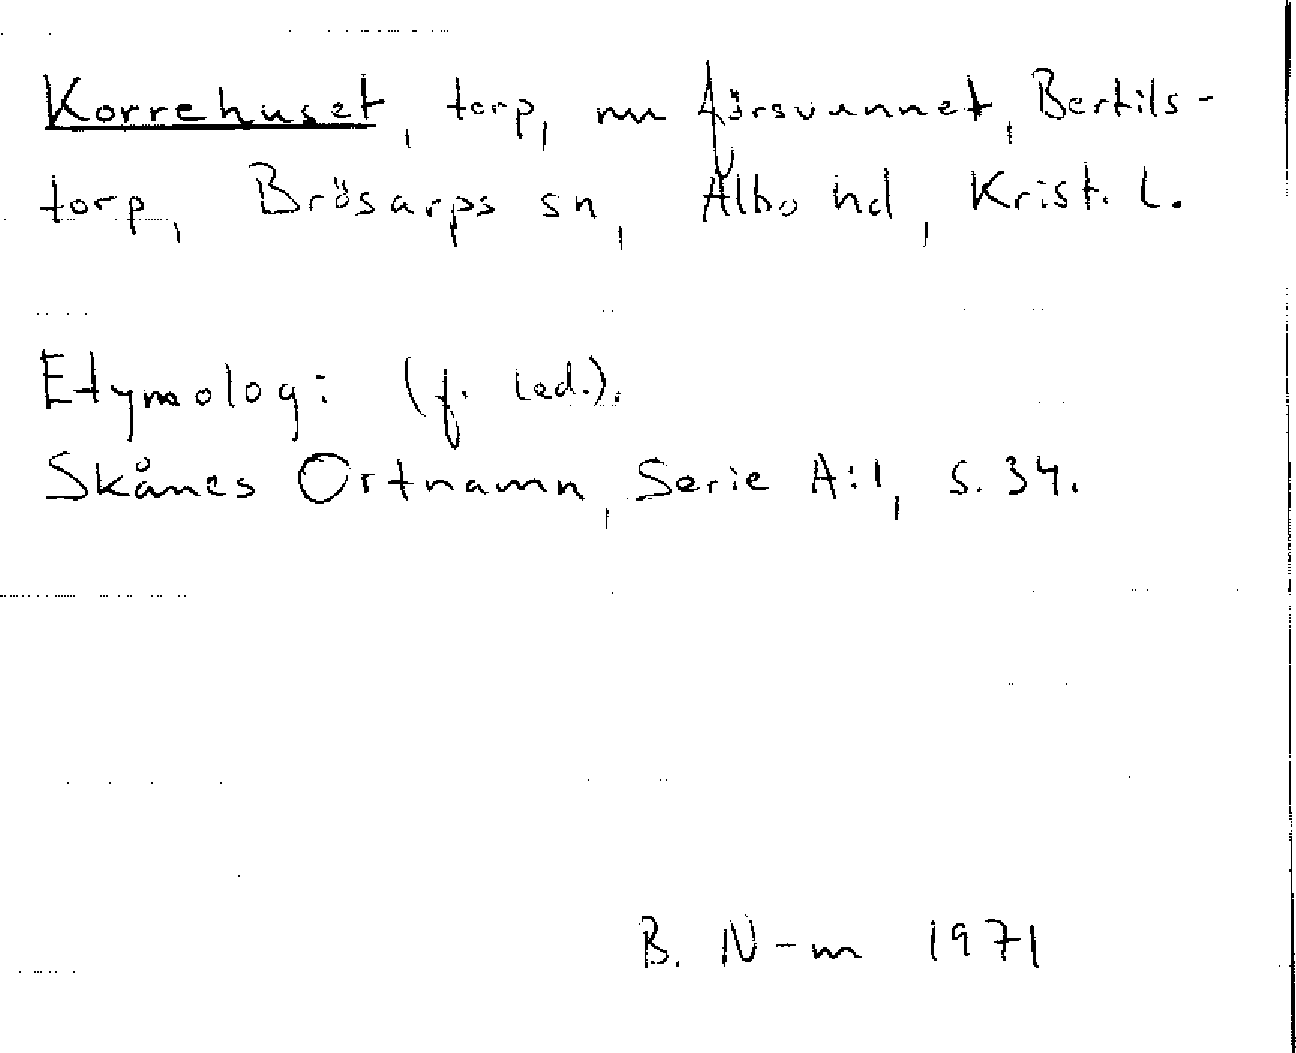 Korrehuset, torp, nu försvunnet, Bertils-
torp, Brösarps sn, Albo hd, Krist. L.
Etymologi (f. led.).
Skånes Ortnamn, Serie A:1, s. 34.
B. N-m 1971